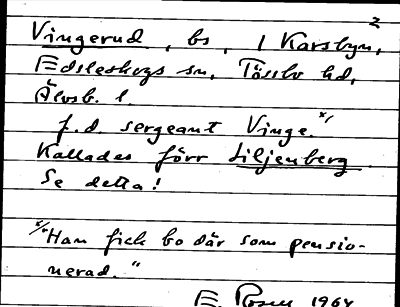 2
Vingerud, bs, i Karsbyn,
Edsleskogs sn, Tössbo hd,
Älvsb. l.
f.d. sergeant Vinge.x/
Kallades förr Liljenberg
Se detta!
x/"Han fick bo där som pensio-
nerad."
E. Rosen 1964